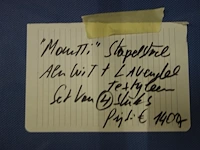 "Moretti" Stapelstoel
Alu wit + Lavendel
textyleen
Set van 4 stuks
Prijs: €